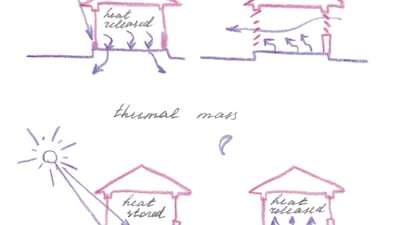 heat
released
thermal mass
heat
stored
heat
released